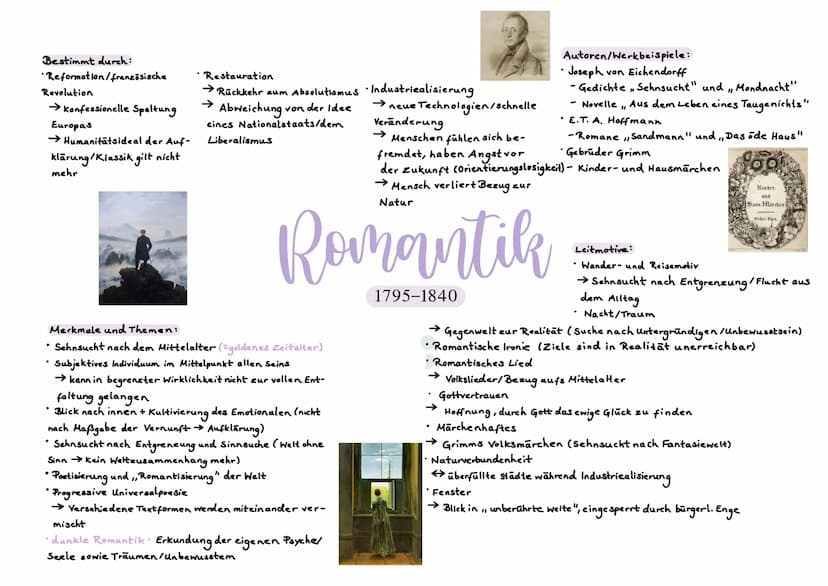 Bestimmt durch:
· Reformation/französische
Revolution
→ Konfessionelle Spaltung
Europas
→ Humanitätsideal der Auf-
klärung/Klassik gilt nicht
mehr
· Restauration
→ Rückkehr zum Absolutismus
→ Abweichung von der Idee
eines Nationalstaats/dem
Liberalismus
· Industriealisierung
→ neue Technologien/schnelle
Veränderung
→ Menschen fühlen sich be-
fremdet, haben Angst vor
der Zukunft (Orientierungslosigkeit)
→ Mensch verliert Bezug zur
Natur
Autoren/Werkbeispiele:
· Joseph von Eichendorff
- Gedichte „Sehnsucht" und „Mondnacht"
- Novelle „Aus dem Leben eines Taugenichts"
· E.T. A. Hoffmann
- Romane „Sandmann" und „Das öde Haus"
· Gebrüder Grimm
- Kinder- und Hausmärchen
Kinder-
und
Haus-Märchen
Romantik
1795–1840
Leitmotive:
· Wander- und Reisemotiv
→ Sehnsucht nach Entgrenzung/Flucht aus
dem Alltag
· Nacht/Traum
→ Gegenwelt zur Realität (Suche nach Untergründigen/Unbewusstsein)
· Romantische Ironie (Ziele sind in Realität unerreichbar)
· Romantisches Lied
→ Volkslieder/Bezug aufs Mittelalter
· Gottvertrauen
→ Hoffnung, durch Gott das ewige Glück zu finden
· Märchenhaftes
→ Grimms Volksmärchen (Sehnsucht nach Fantasiewelt)
· Naturverbundenheit
↔ überfüllte Städte während Industriealisierung
· Fenster
→ Blick in „unberührte Welte", eingesperrt durch bürgerl. Enge
Merkmale und Themen:
· Sehnsucht nach dem Mittelalter (=goldenes Zeitalter)
· Subjektives Individuum im Mittelpunkt allen Seins
→ kann in begrenzter Wirklichkeit nicht zur vollen Ent-
faltung gelangen
· Blick nach innen + Kultivierung des Emotionalen (nicht
nach Maßgabe der Vernunft → Aufklärung)
· Sehnsucht nach Entgrenzung und Sinnsuche (Welt ohne
Sinn → Kein Weltzusammenhang mehr)
· Poetisierung und „Romantisierung" der Welt
· Progressive Universalpoesie
→ Verschiedene Textformen werden miteinander ver-
mischt
· dunkle Romantik · Erkundung der eigenen Psyche/
Seele sowie Träumen/Unbewusstem